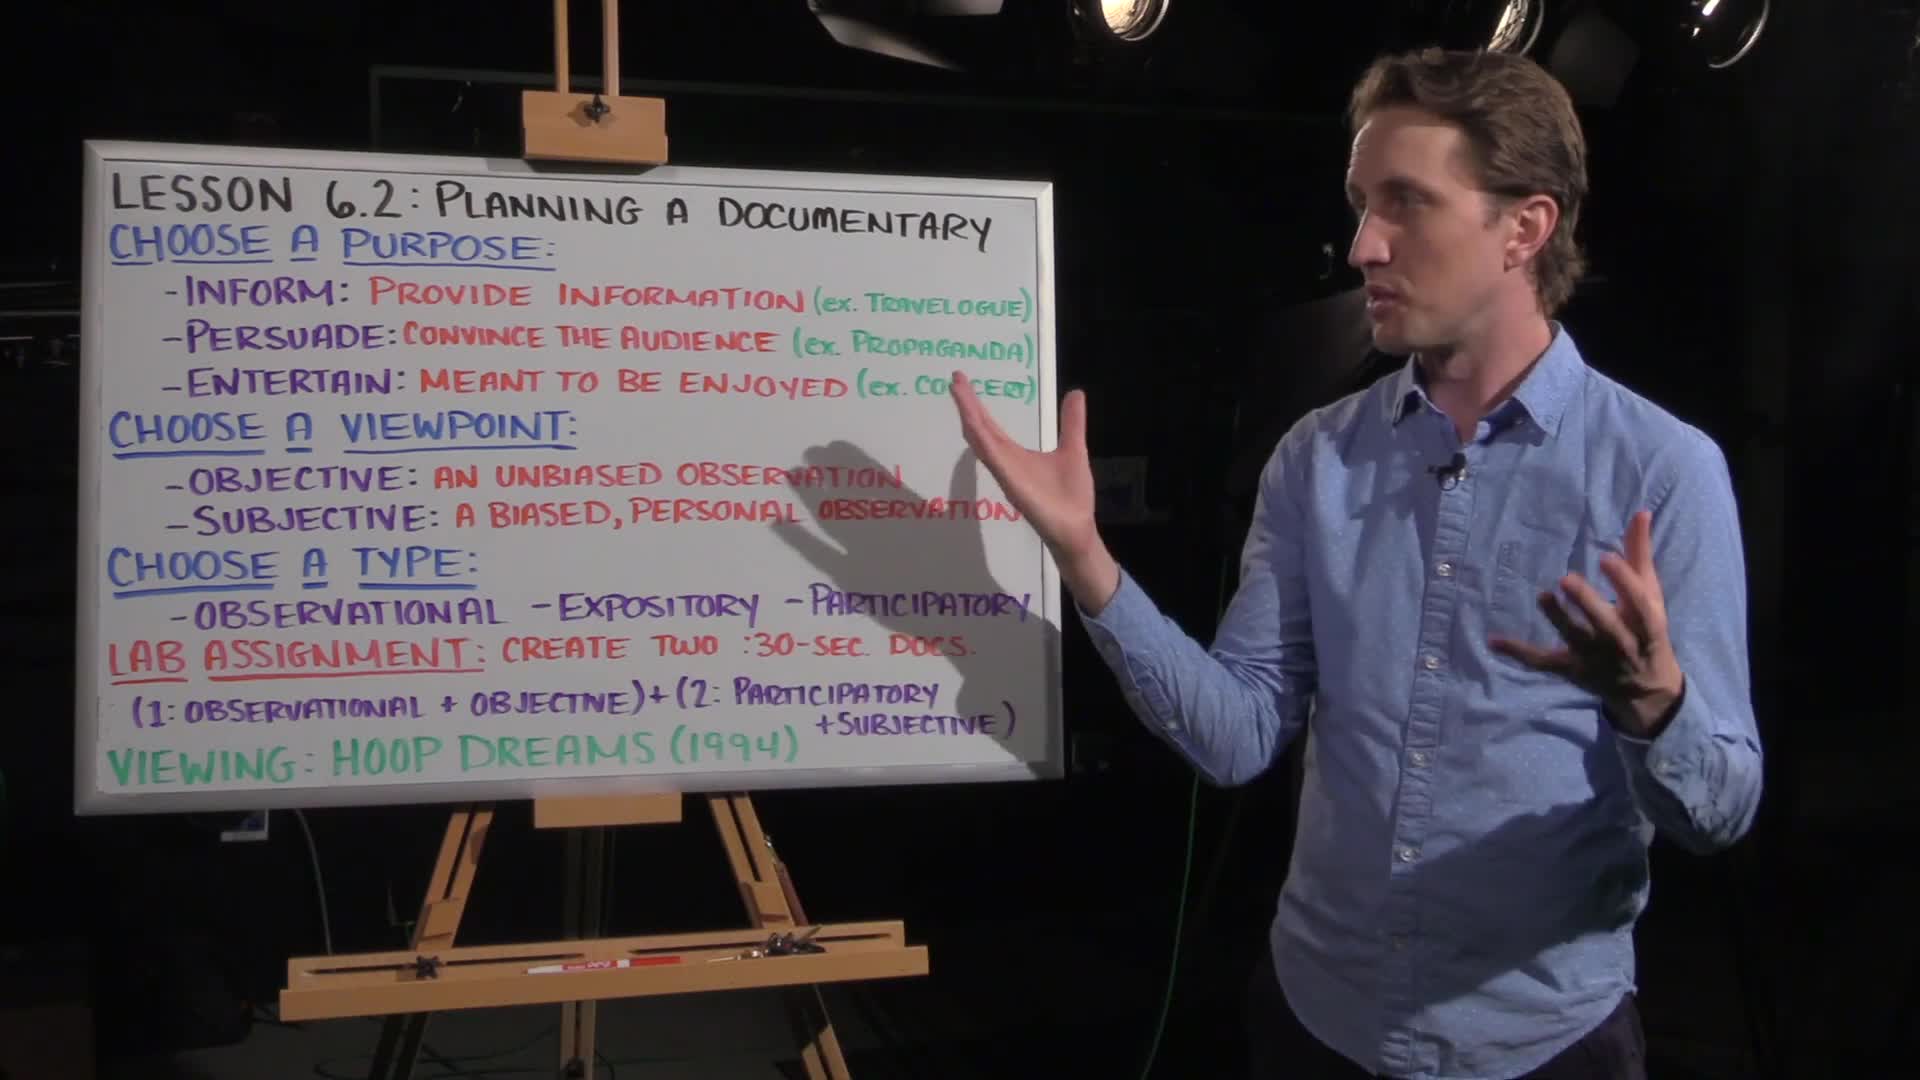 LESSON 6.2: PLANNING A DOCUMENTARY
CHOOSE A PURPOSE:
- INFORM: PROVIDE INFORMATION (ex. TRAVELOGUE)
- PERSUADE: CONVINCE THE AUDIENCE (ex. PROPAGANDA)
- ENTERTAIN: MEANT TO BE ENJOYED (ex. CONCERT)
CHOOSE A VIEWPOINT:
- OBJECTIVE: AN UNBIASED OBSERVATION
- SUBJECTIVE: A BIASED, PERSONAL OBSERVATION
CHOOSE A TYPE:
- OBSERVATIONAL - EXPOSITORY - PARTICIPATORY
LAB ASSIGNMENT: CREATE TWO :30-SEC. DOCS.
(1: OBSERVATIONAL + OBJECTIVE) + (2: PARTICIPATORY
+ SUBJECTIVE)
VIEWING: HOOP DREAMS (1994)